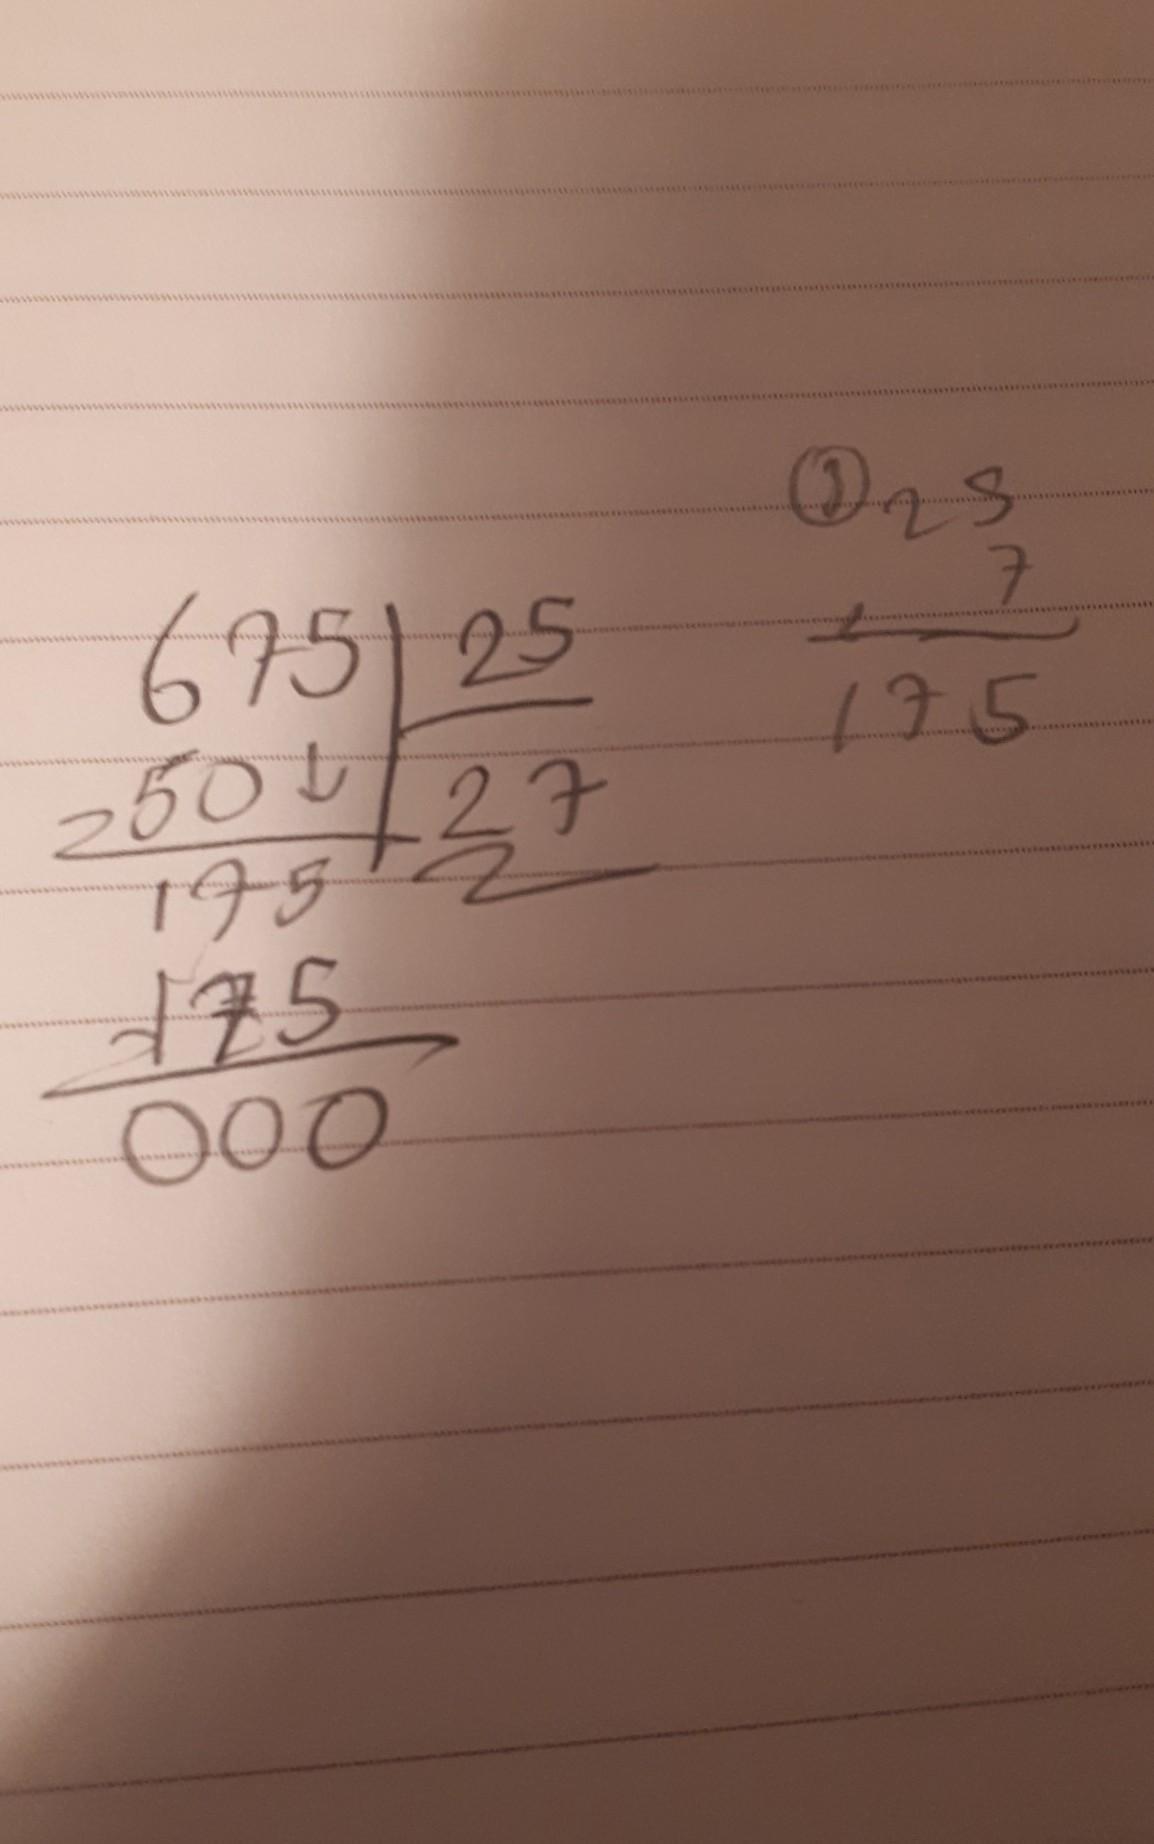 675 25
- 50 ↓ 27
175
- 175
000
① 25
7
175